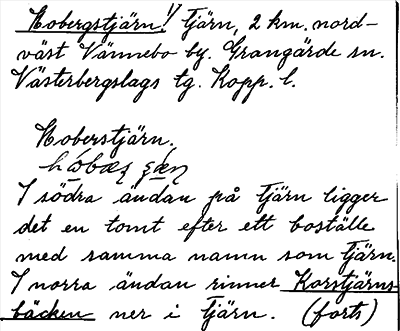 Hobergstjärn!! Tjärn, 2 km. nord-
väst Vännebo by. Grangärde sn.
Västerbergslags tg. Kopp. l.
Hoberstjärn.
I södra ändan på tjärn ligger
det en tomt efter ett boställe
med samma namn som tjärn.
I norra ändan rinner Korstjärns-
bäcken ner i tjärn. (forts)